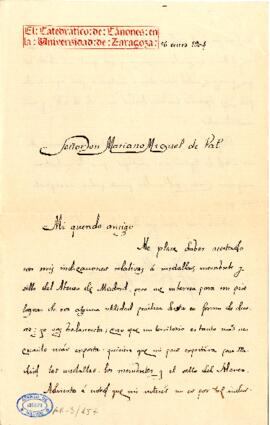 El Catedrático de Cánones en
la Universidad de Zaragoza
16 enero 1904
Señor Don Mariano Miguel de Val
Mi querido amigo
Me place haber acertado
con mis indicaciones relativas á medallas, membrete y
sello del Ateneo de Madrid, pero me interesa para mi país
lograr de eso alguna utilidad práctica en forma de
y creo que un territorio es tanto más
cuanto más exporta: quisiera que mi país exportira para Ma-
drid las medallas, los membretes, y el sello del Ateneo.
Advierto á usted que mi interés no es por tal